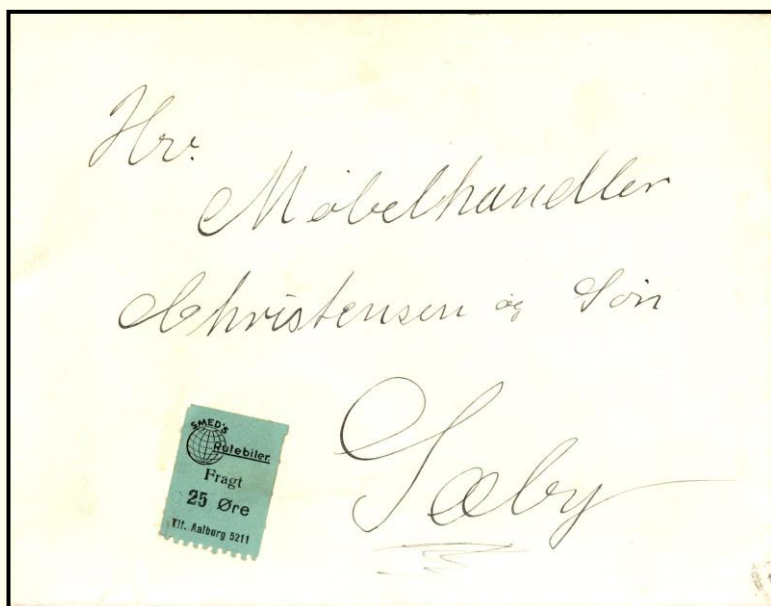 Hr.
Møbelhandler
Christensen og Søn
Sæby
SMED'S
Rutebiler.
Fragt
25 Øre
Tlf. Aalborg 5211